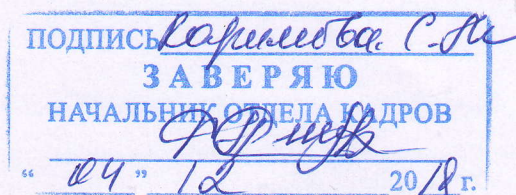 ПОДПИСЬ Каримова С.М.
ЗАВЕРЯЮ
НАЧАЛЬНИК ОТДЕЛА КАДРОВ
“ 04 ” 12 2018 г.